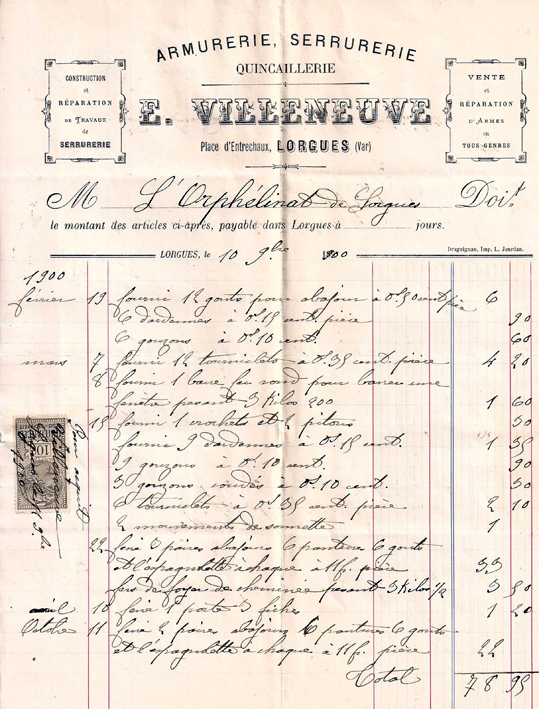 ARMURERIE, SERRURERIE
QUINCAILLERIE
E. VILLENEUVE
Place d'Entrechaux, LORGUES (Var)
CONSTRUCTION
et
RÉPARATION
DE TRAVAUX
de
SERRURERIE
VENTE
et
RÉPARATION
D'ARMES
en
TOUS GENRES
M L'Orphélinat de Lorgues Doit
le montant des articles ci-après, payable dans Lorgues à jours.
Draguignan, Imp. L. Jourdan.
LORGUES, le 10 9bre 1900
1900
février 19 fourni 12 gonts pour abajour à 0f.50 cent pièce 6
6 dardennes à 0f.15 cent. pièce 90
6 gouzons à 0f.10 cent. 60
mars 7 fourni 12 tourniclets à 0f.35 cent. pièce 4 20
8 fourni 1 barre feu rond pour barrer une
fenêtre pesant 3 Kilos 200 1 60
15 fourni 1 crochets et 2 pitons 50
fournir 9 dardennes à 0f.15 cent. 1 35
9 gouzons à 0f.10 cent. 90
3 gouzons coudés à 0f.10 cent. 30
6 tourniclets à 0f.35 cent. pièce 2 10
2 mouvements de sonnette 1
22 féré 3 paires abajours 6 pantures 6 gonts
et l'espagnolette à chaque à 11 fr. pièce 33
fers de foyer de cheminée pesant 3 Kilos 1/2 3 50
avril 10 féré 1 porte 3 fiches 1 20
Octobre 11 féré 2 paires abajours 6 pantures 6 gonts
et l'espagnolette à chaque à 11 fr. pièce 22
Total 78 95
Pour acquit
10